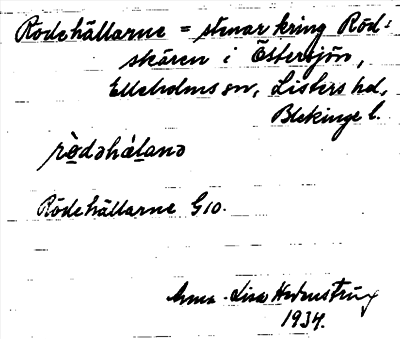 Rödehällarne = stenar kring Röd=
skären i Östersjön,
Elleholms sn, Listers hd,
Blekinge l.
rò̱dəhȧ̱lanə
Rödehällarne G10.
Anna-Lisa Hedenström
1934.